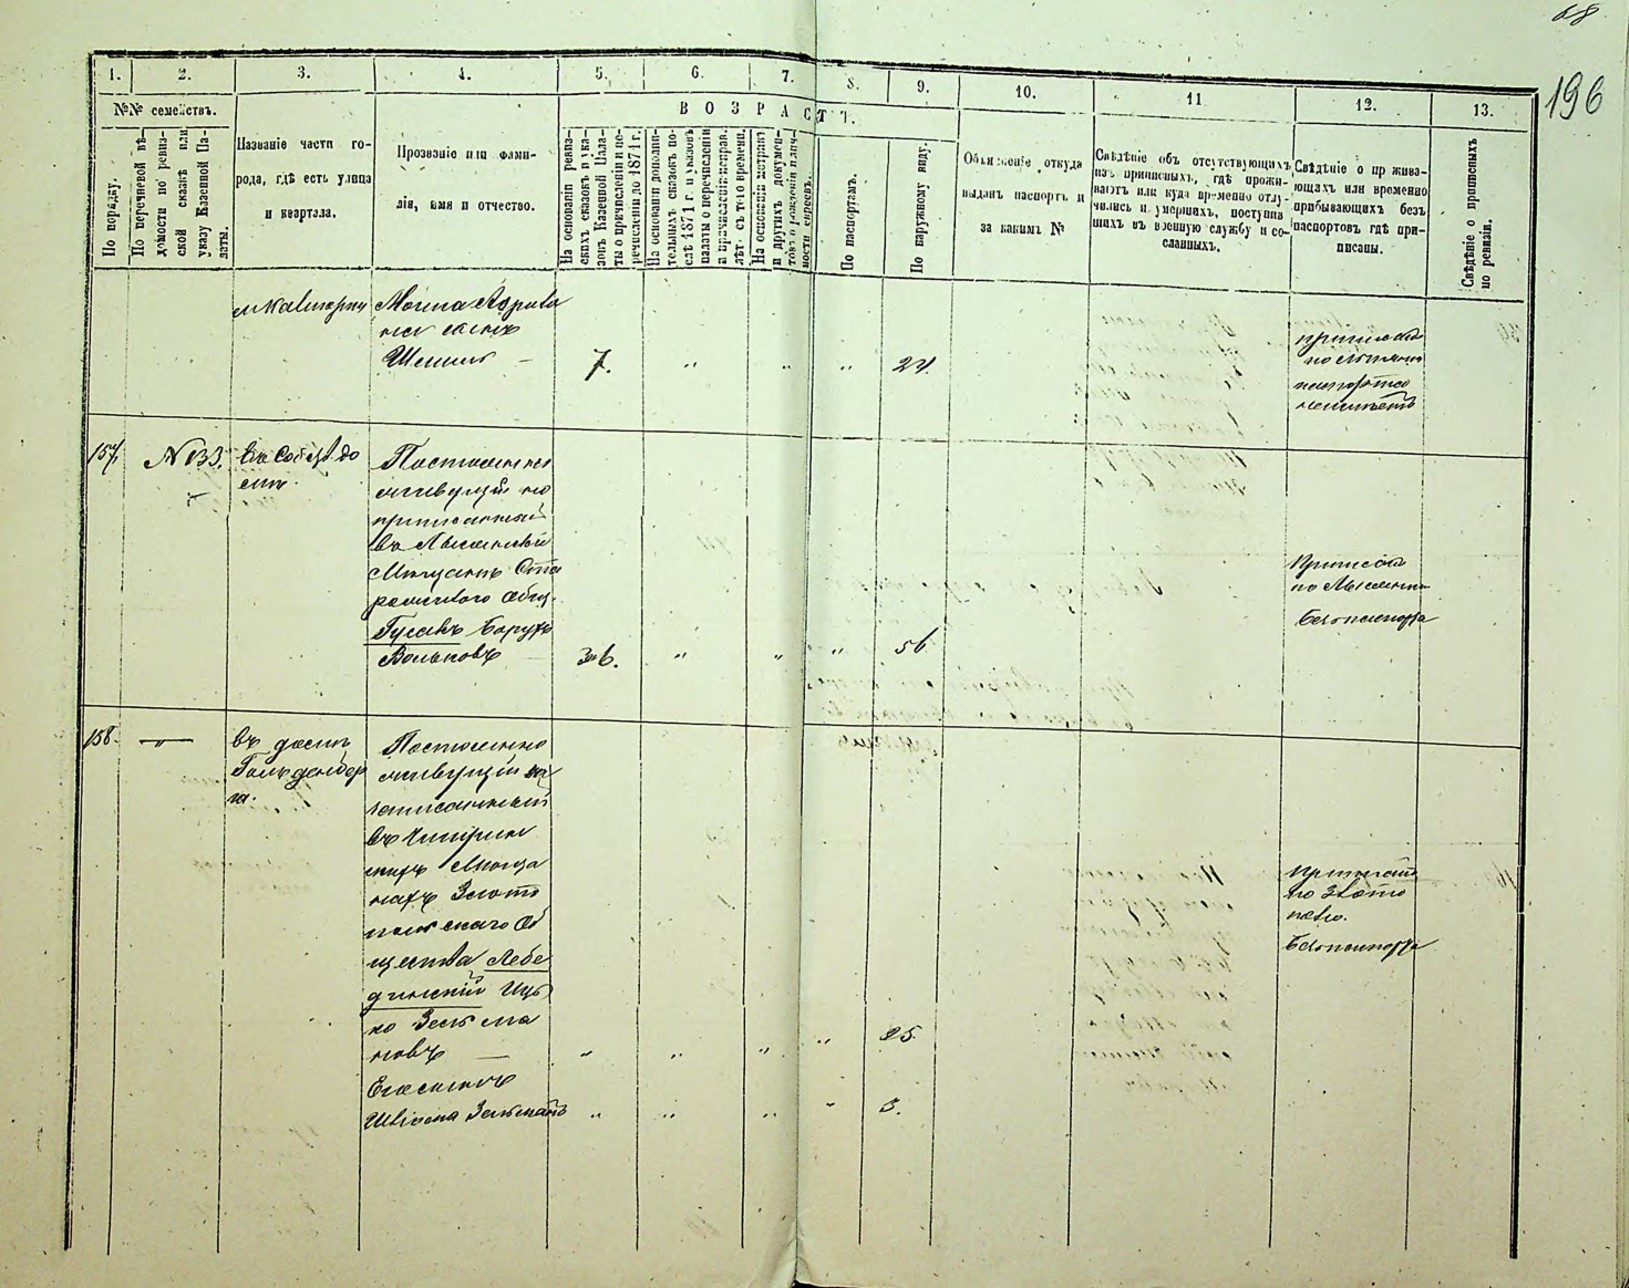 68
196
1. 2. 3. 4. 5. 6. 7. 8. 9. 10. 11 12. 13.
№№ семействъ.
По порядку.
По перечневой вѣ-
домости по ревиз-
ской сказкѣ или
указу Казенной Па-
латы.
Названіе части го-
рода, гдѣ есть улица
и квартала.
Прозваніе или фами-
лія, имя и отчество.
ВОЗРАСТЪ.
На основаніи ревиз-
скихъ сказокъ и ука-
зовъ Казенной Пала-
ты о причисленіи и пе-
речисленіи до 1871 г.
На основаніи дополни-
тельныхъ сказокъ по-
слѣ 1871 г. и указовъ
палаты о перечисленіи
и причисленіи исправ.
лѣт. съ того времени.
На основаніи метрик.
и другихъ докумен-
товъ о рожденіи и лич-
ности евреевъ.
По паспортамъ.
По наружному виду.
Объясненіе откуда
выданъ паспортъ и
за какимъ №
Свѣдѣніе объ отсутствующихъ
изъ приписныхъ, гдѣ прожи-
ваютъ или куда временно отлу-
чились и умершихъ, поступив
шихъ въ военную службу и со-
сланныхъ.
Свѣдѣніе о пр жива-
ющихъ или временно
прибывающихъ безъ
паспортовъ гдѣ при-
писаны.
Свѣдѣніе о приписныхъ
по ревизіи.
Шешль — 7. " " " 24.
паспорта
неимѣетъ
157. № 133. Въ собств. до
мѣ.
Постоянно
живущій но
приписанный
въ Лысянскій
Мѣщанъ Ста
росѣтского Общ.
Гусакъ Борухъ
Вольковъ 36. " " " 56
приписан
по Лысянкѣ
безъ паспорта
158. — " — въ домѣ
Гольденбер
га.
Постоянно
живущій но
записанный
въ Чигирин
скихъ Мѣща
нахъ Злато
польскаго Об
щества Лебе
динскій Иць
ко Зельма
новъ — " " " " 25.
Его сынъ
Шліома Зельманъ " " " " 3.
приписанъ
по Злато
полю.
Безъ паспорта